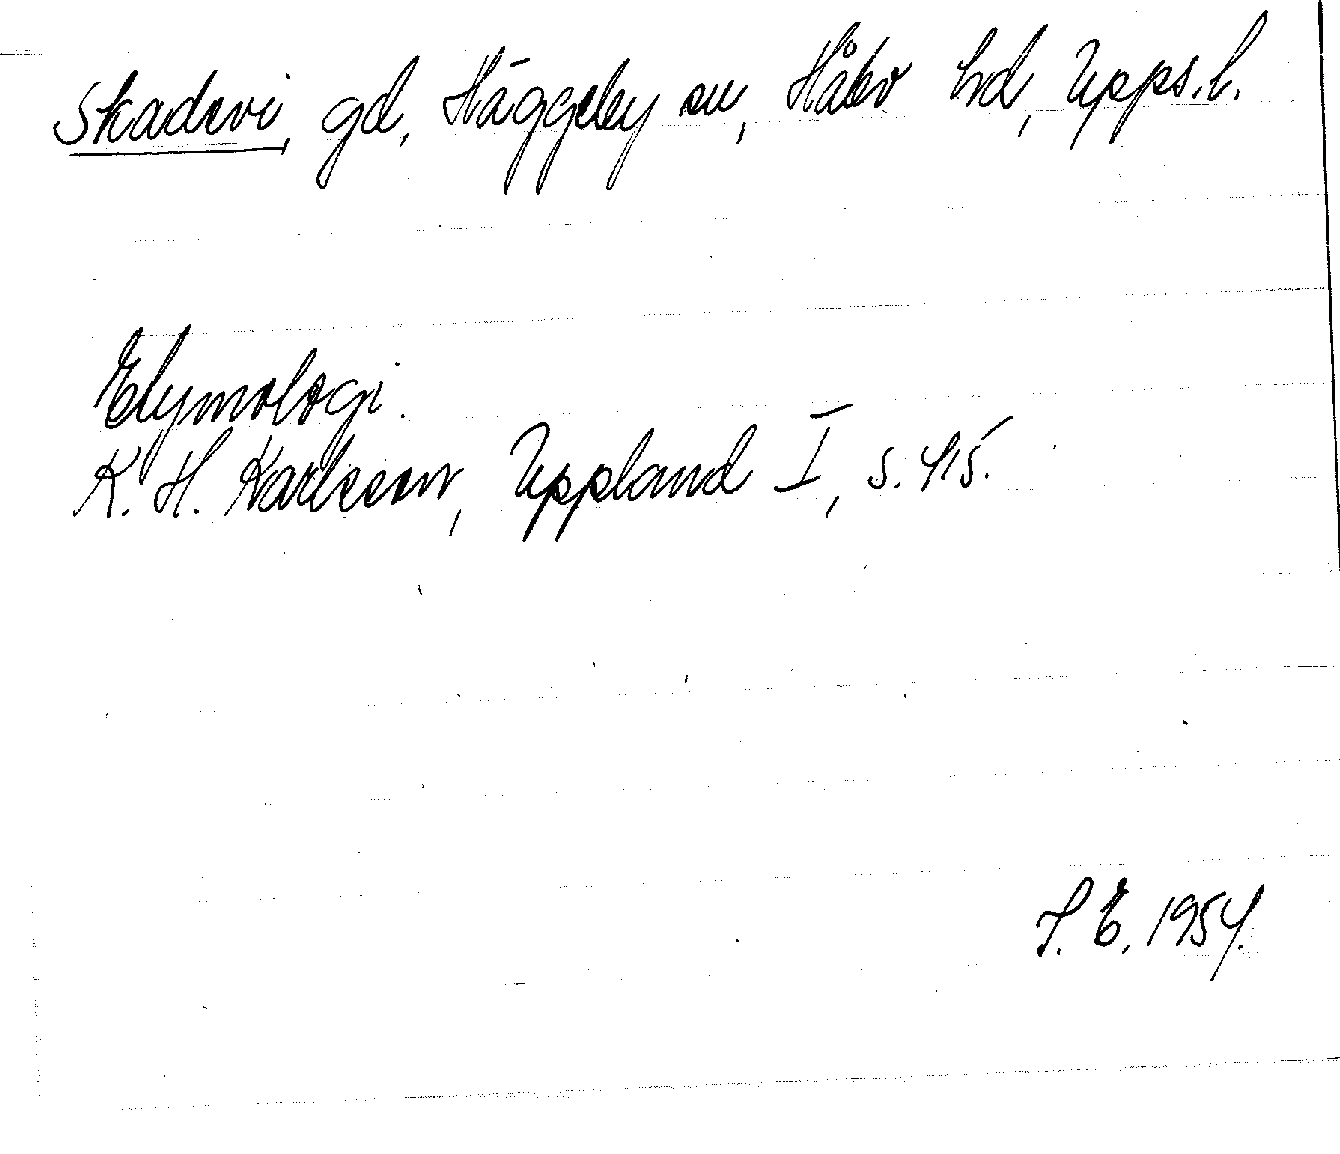 Skadevi, gd, Häggeby sn, Håbo hd, Upps.l.
Etymologi.
K. H. Karlsson, Uppland I, s. 415.
J. E. 1954.